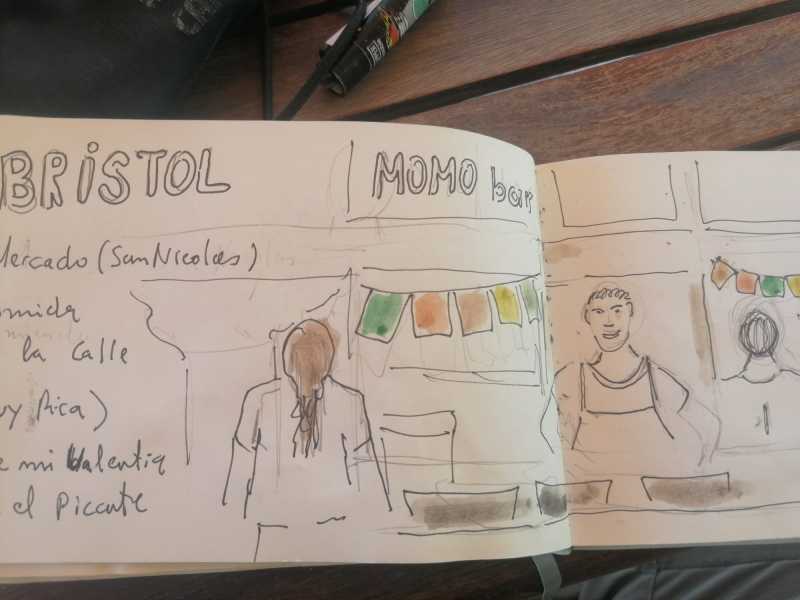 BRISTOL
MOMO bar
Mercado (San Nicolas)
omida
la Calle
uy Rica)
e mi Valentia
el Piccante